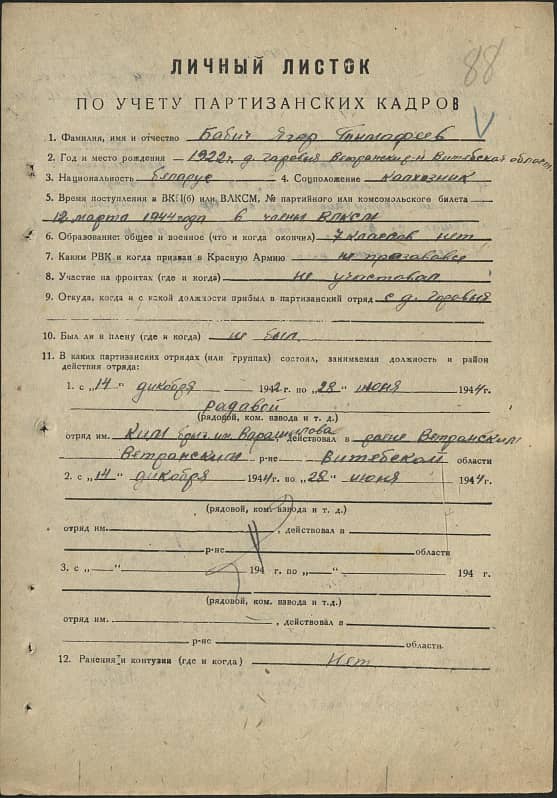 88
ЛИЧНЫЙ ЛИСТОК
ПО УЧЕТУ ПАРТИЗАНСКИХ КАДРОВ
1. Фамилия, имя и отчество Бабич Ягор Тимафеев
2. Год и место рождения – 1922 г. д. Гаровыя Ветранский р-н Витебской области
3. Национальность беларус 4. Соцположение Калхозник
5. Время поступления в ВКП(б) или ВЛКСМ, № партийного или комсомольского билета
12 марта 1944 года в члены ВЛКСМ
6. Образование: общее и военное (что и когда окончил) 7 класов нет
7. Каким РВК и когда призван в Красную Армию не призавался
8. Участие на фронтах (где и когда) не участвовал
9. Откуда, когда и с какой должности прибыл в партизанский отряд с д. Горовыя
10. Был ли в плену (где и когда) не был
11. В каких партизанских отрядах (или группах) состоял, занимаемая должность и район
действия отряда:
1. с „14“ дикабря 1942 г. по „28“ июня 1944 г.
радавой
(рядовой, ком. взвода и т. д.)
отряд им. Ким бриг. им. Варашилова действовал в раене Ветранским
Ветранским р-не Витебской области
2. с „14“ дикабря 1944 г. по „28“ июня 1944 г.
(рядовой, ком. взвода и т. д.)
отряд им. , действовал в
р-не области
3. с „ “ 194 г. по „ “ 194 г.
(рядовой, ком. взвода и т.д.)
отряд им. , действовал в
р-не области.
12. Ранения и контузии (где и когда) Нет